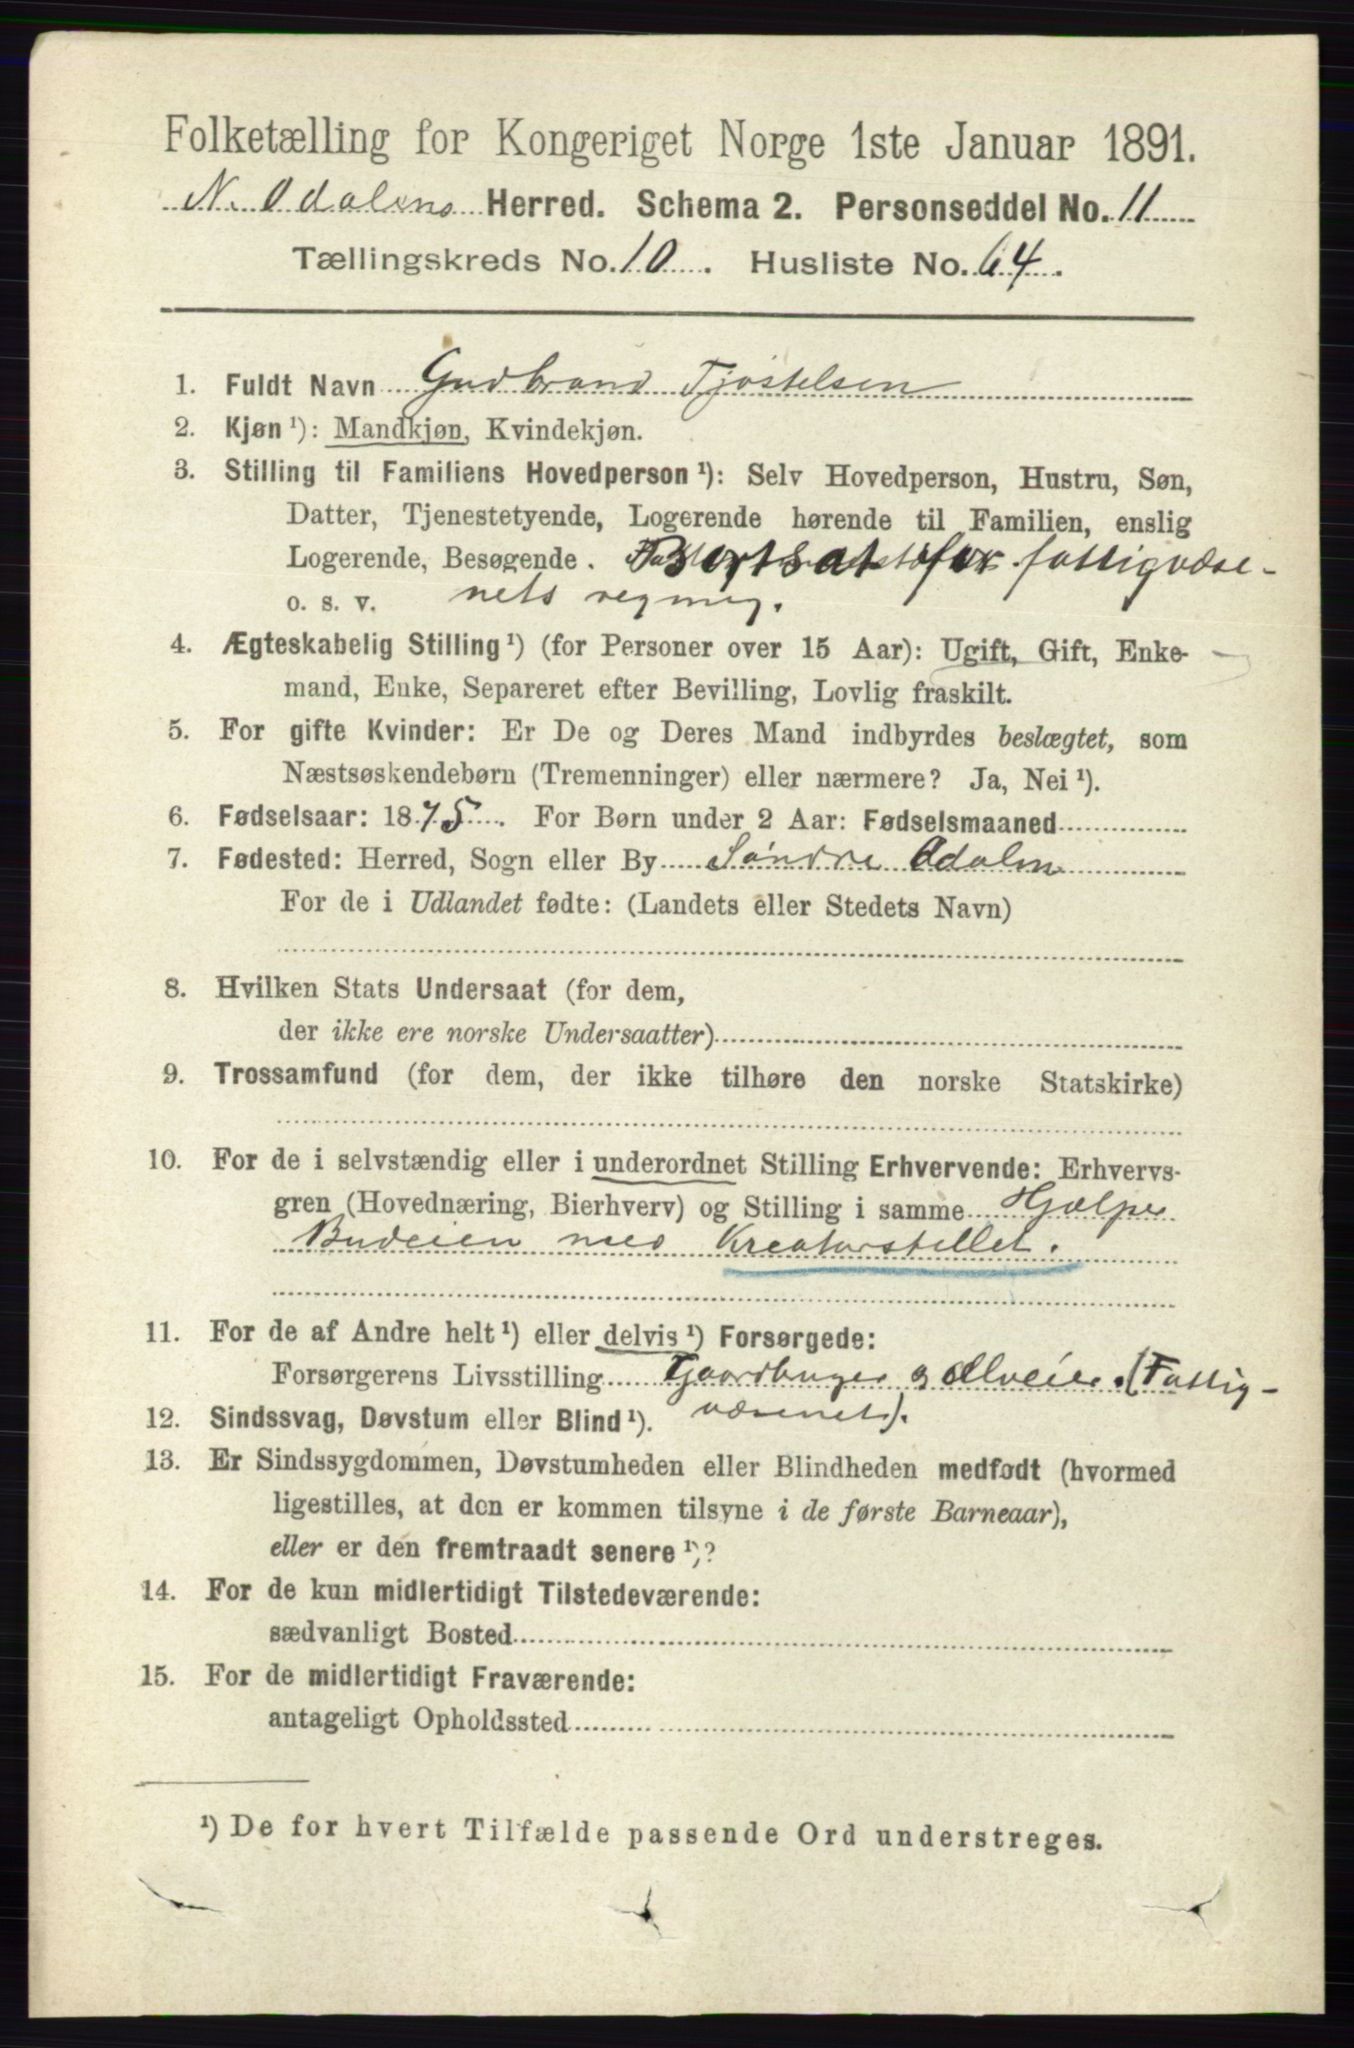 Folketælling for Kongeriget Norge 1ste Januar 1891.
N. Odalens Herred. Schema 2. Personseddel No. 11
Tællingskreds No. 10. Husliste No. 64.
1. Fuldt Navn Gudbrand Tjøstelsen
2. Kjøn ¹): Mandkjøn, Kvindekjøn.
3. Stilling til Familiens Hovedperson ¹): Selv Hovedperson, Hustru, Søn,
Datter, Tjenestetyende, Logerende hørende til Familien, enslig
Logerende, Besøgende. Bortsat for fattigvæse-
o. s. v. nets regning.
4. Ægteskabelig Stilling ¹) (for Personer over 15 Aar): Ugift, Gift, Enke-
mand, Enke, Separeret efter Bevilling, Lovlig fraskilt.
5. For gifte Kvinder: Er De og Deres Mand indbyrdes beslægtet, som
Næstsøskendebørn (Tremenninger) eller nærmere? Ja, Nei ¹).
6. Fødselsaar: 1875. For Børn under 2 Aar: Fødselsmaaned
7. Fødested: Herred, Sogn eller By Søndre Odalen
For de i Udlandet fødte: (Landets eller Stedets Navn)
8. Hvilken Stats Undersaat (for dem,
der ikke ere norske Undersaatter)
9. Trossamfund (for dem, der ikke tilhøre den norske Statskirke)
10. For de i selvstændig eller i underordnet Stilling Erhvervende: Erhvervs-
gren (Hovednæring, Bierhverv) og Stilling i samme Hjælper
Budeien med Kreaturstellet.
11. For de af Andre helt ¹) eller delvis ¹) Forsørgede:
Forsørgerens Livsstilling Gaardbruger og Selveier. (Fattig-
12. Sindssvag, Døvstum eller Blind ¹). væsenet).
13. Er Sindssygdommen, Døvstumheden eller Blindheden medfødt (hvormed
ligestilles, at den er kommen tilsyne i de første Barneaar),
eller er den fremtraadt senere ¹)?
14. For de kun midlertidigt Tilstedeværende:
sædvanligt Bosted
15. For de midlertidigt Fraværende:
antageligt Opholdssted
¹) De for hvert Tilfælde passende Ord understreges.